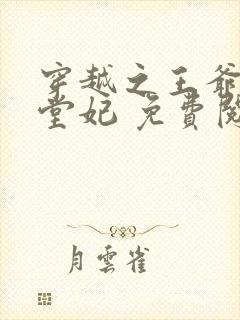 穿越之王爺
堂妃 免費閱
月雲雀